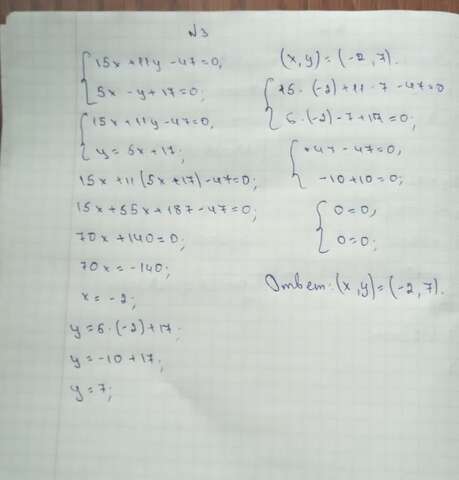 №3
15x+11y-47=0,
5x-y+17=0;
15x+11y-47=0,
y=5x+17;
15x+11(5x+17)-47=0;
15x+55x+187-47=0;
70x+140=0;
70x=-140;
x=-2;
y=5·(-2)+17;
y=-10+17;
y=7;
(x,y)=(-2,7).
15·(-2)+11·7-47=0
5·(-2)-7+17=0;
+47-47=0,
-10+10=0;
0=0,
0=0;
Ответ:(x,y)=(-2,7).